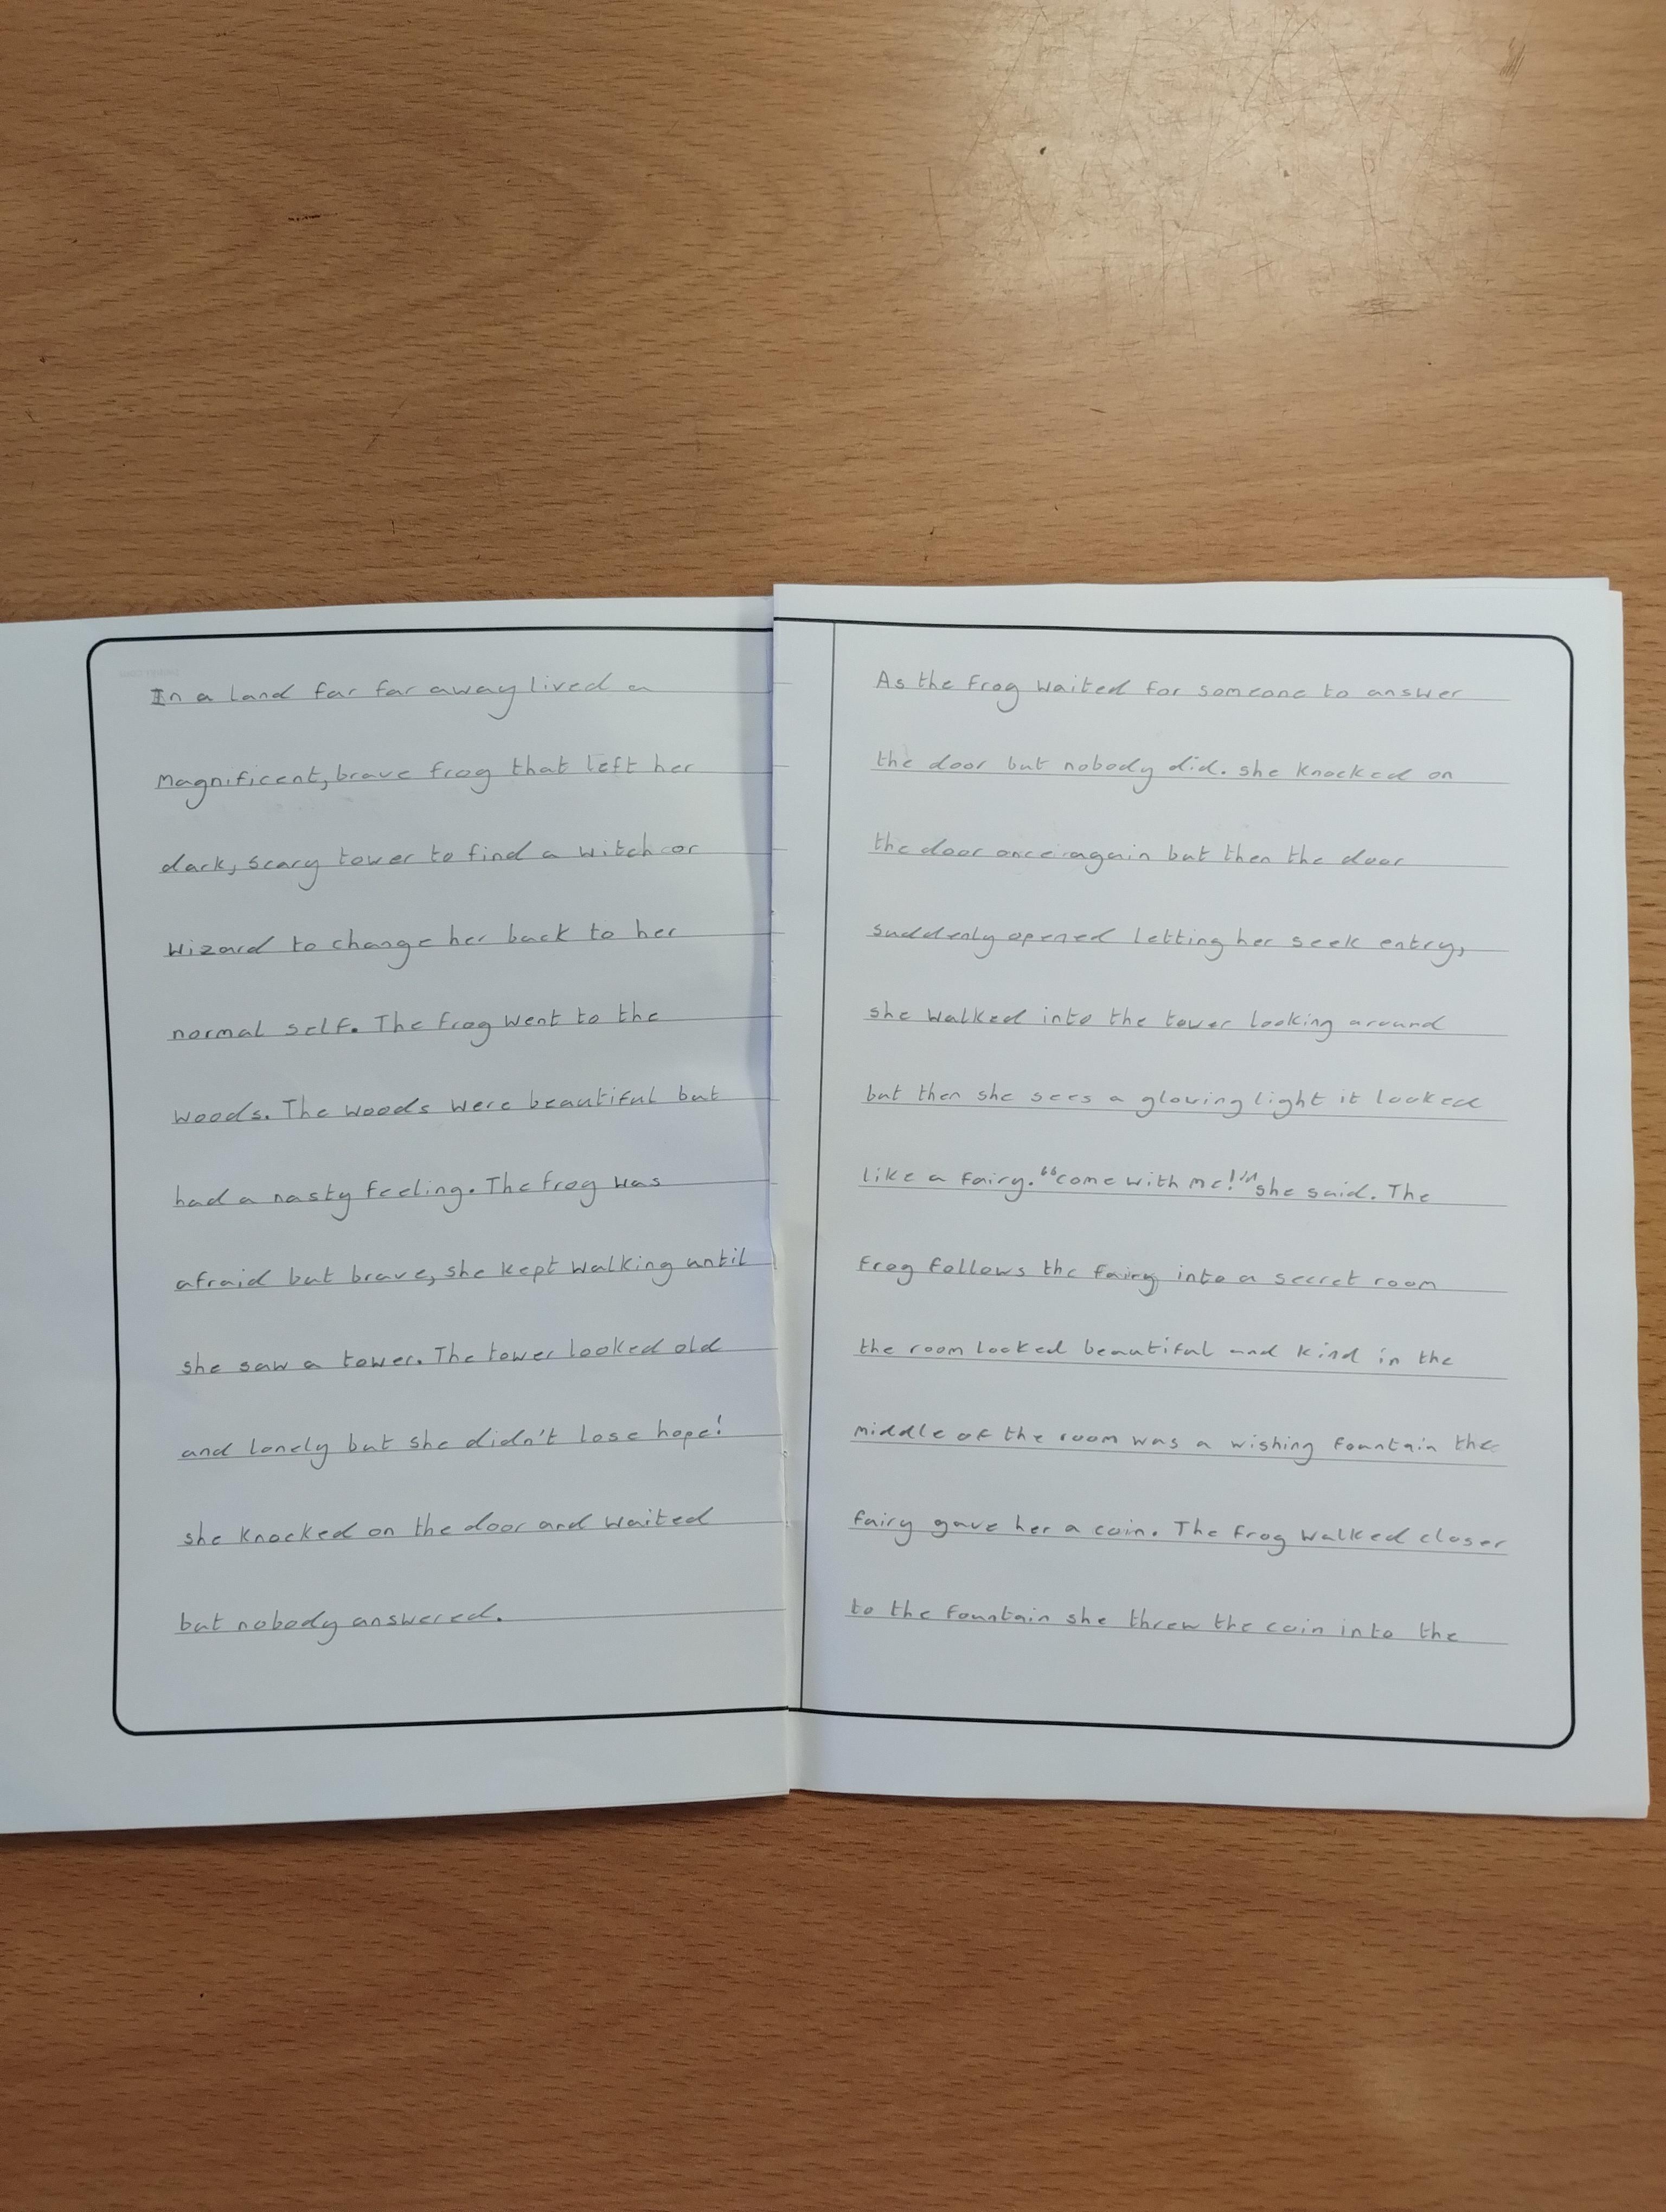 In a land far far away lived a
magnificent, brave frog that left her
dark, scary tower to find a witch or
wizard to change her back to her
normal self. The frog went to the
woods. The woods were beautiful but
had a nasty feeling. The frog was
afraid but brave, she kept walking until
she saw a tower. The tower looked old
and lonely but she didn't lose hope!
she knocked on the door and waited
but nobody answered.
As the frog waited for someone to answer
the door but nobody did. she knocked on
the door once again but then the door
suddenly opened letting her seek entry,
she walked into the tower looking around
but then she sees a glowing light it looked
like a fairy. "come with me!" she said. The
frog follows the fairy into a secret room
the room looked beautiful and kind in the
middle of the room was a wishing fountain the
fairy gave her a coin. The frog walked closer
to the fountain she threw the coin into the